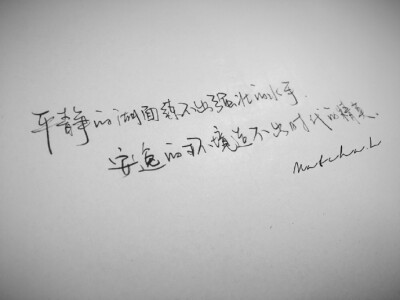 平静的湖面练不出强壮的水手.
安逸的环境造不出时代的精英.